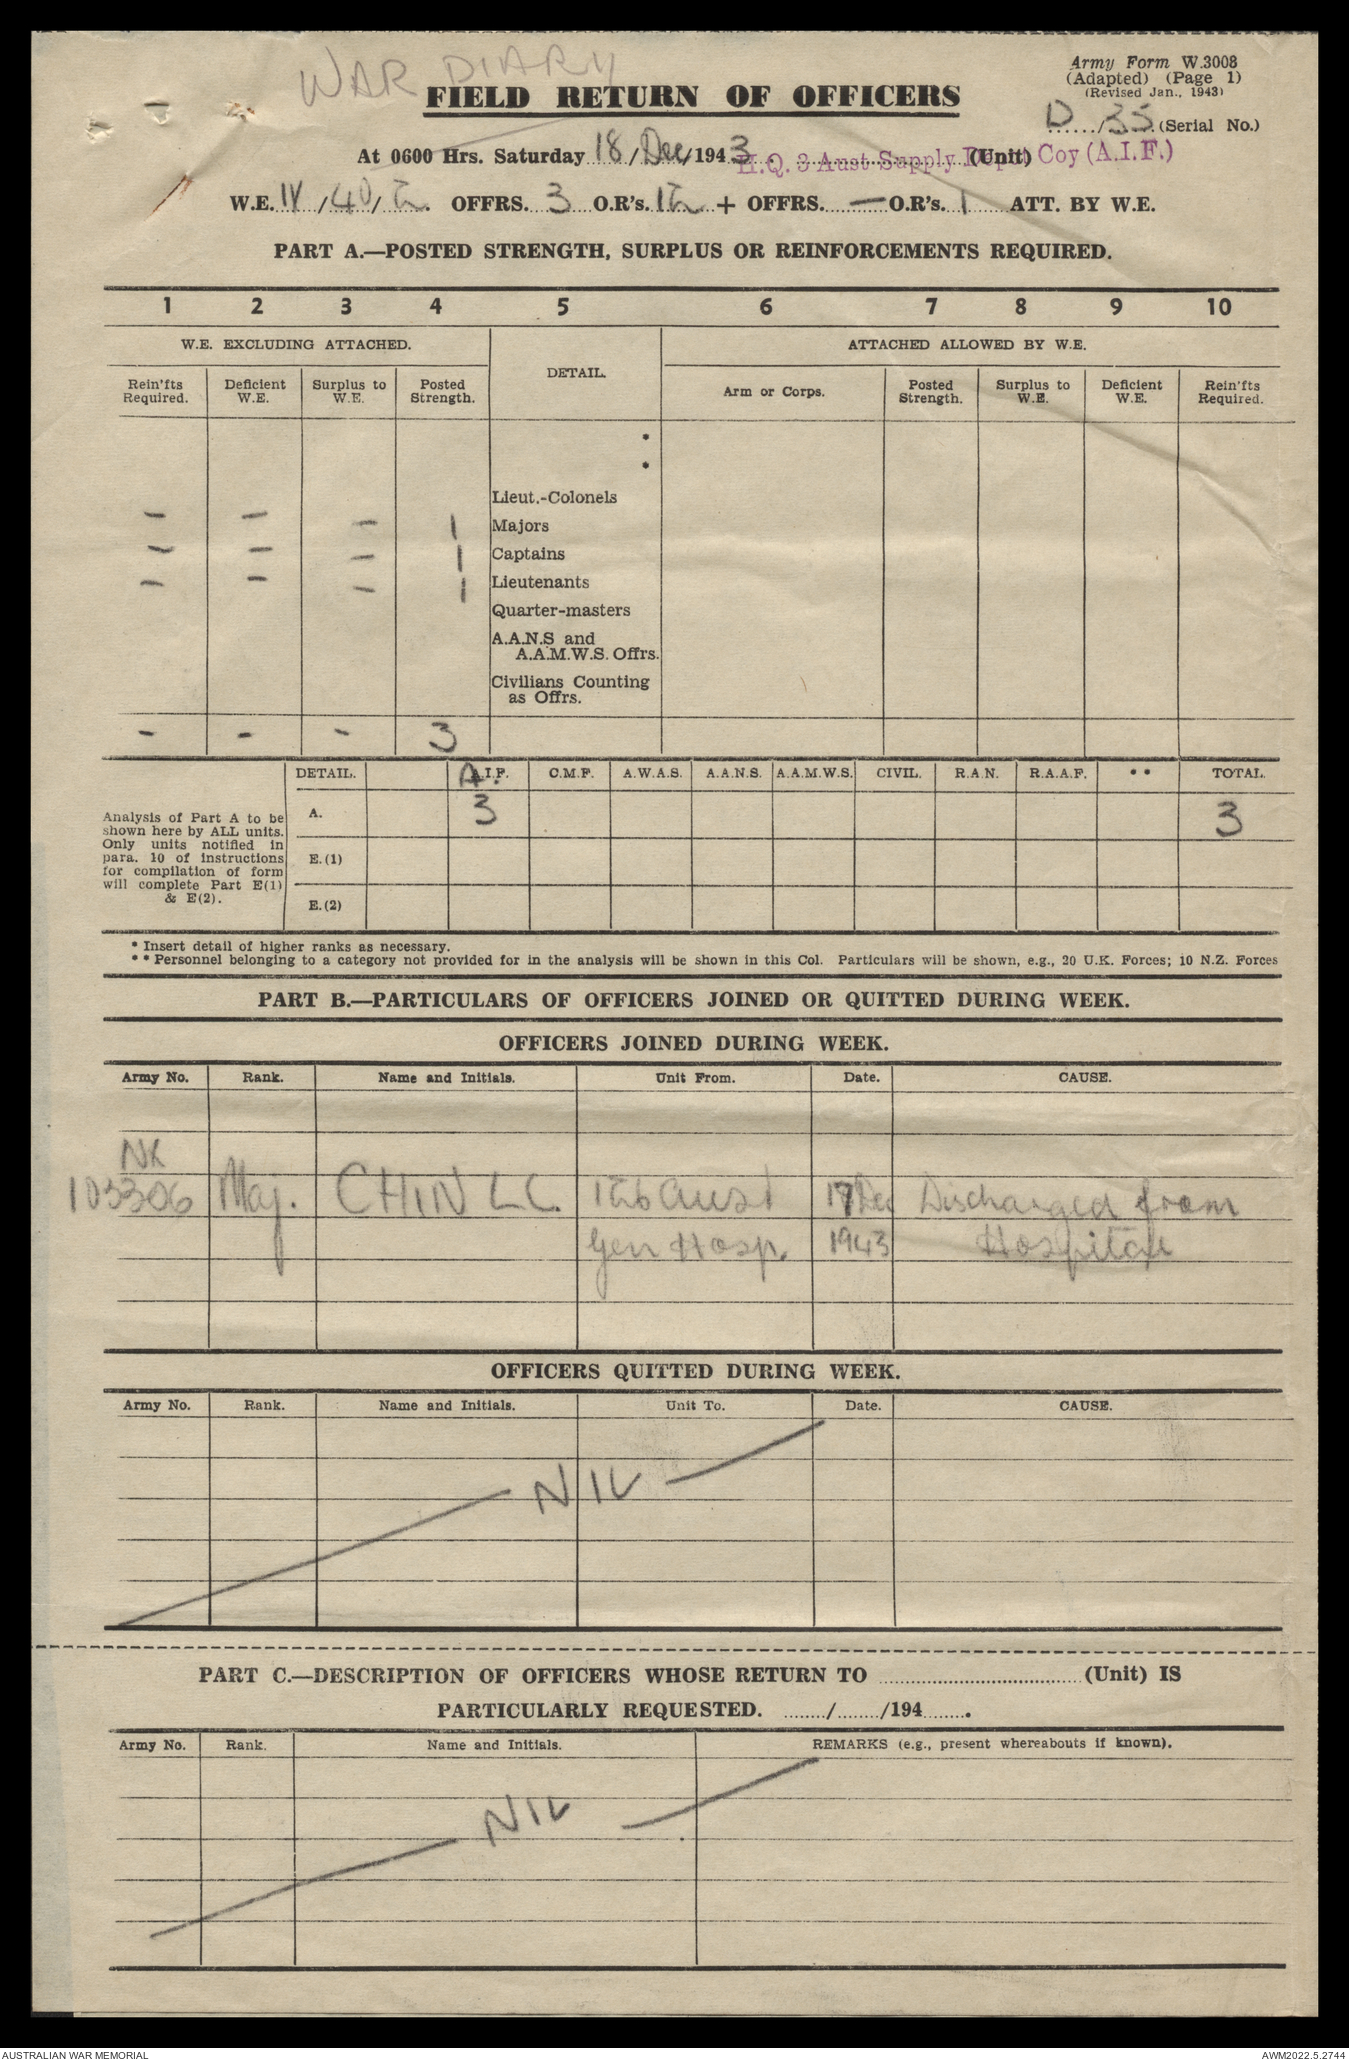 WAR DIARY
Army Form W.3008
(Adapted) (Page 1)
(Revised Jan., 1943)
FIELD RETURN OF OFFICERS
D/35 (Serial No.)
At 0600 Hrs. Saturday 18/Dec/1943. H.Q. 3 Aust Supply Depot Coy (A.I.F.) (Unit)
W.E. IV/40/2. OFFRS. 3 O.R's. 12 + OFFRS. — O.R's. 1 ATT. BY W.E.
PART A.—POSTED STRENGTH, SURPLUS OR REINFORCEMENTS REQUIRED.
1 2 3 4 5 6 7 8 9 10
W.E. EXCLUDING ATTACHED. DETAIL. ATTACHED ALLOWED BY W.E.
Rein'fts Required. Deficient W.E. Surplus to W.E. Posted Strength. Arm or Corps. Posted Strength. Surplus to W.E. Deficient W.E. Rein'fts Required.
*
*
Lieut.-Colonels
– – – 1 Majors
– – – 1 Captains
– – – 1 Lieutenants
Quarter-masters
A.A.N.S and
A.A.M.W.S. Offrs.
Civilians Counting
as Offrs.
– – – 3
DETAIL. A.I.F. C.M.F. A.W.A.S. A.A.N.S. A.A.M.W.S. CIVIL. R.A.N. R.A.A.F. ** TOTAL.
Analysis of Part A to be
shown here by ALL units.
Only units notified in
para. 10 of instructions
for compilation of form
will complete Part E(1)
& E(2).
A. 3 3
E.(1)
E.(2)
* Insert detail of higher ranks as necessary.
** Personnel belonging to a category not provided for in the analysis will be shown in this Col. Particulars will be shown, e.g., 20 U.K. Forces; 10 N.Z. Forces
PART B.—PARTICULARS OF OFFICERS JOINED OR QUITTED DURING WEEK.
OFFICERS JOINED DURING WEEK.
Army No. Rank. Name and Initials. Unit From. Date. CAUSE.
NX
103306 Maj. CHIN L.C. 126 Aust 17 Dec Discharged from
Gen Hosp. 1943 Hospital
OFFICERS QUITTED DURING WEEK.
Army No. Rank. Name and Initials. Unit To. Date. CAUSE.
NIL
PART C.—DESCRIPTION OF OFFICERS WHOSE RETURN TO ........ (Unit) IS
PARTICULARLY REQUESTED. ......../......../194.........
Army No. Rank. Name and Initials. REMARKS (e.g., present whereabouts if known).
NIL
AUSTRALIAN WAR MEMORIAL
AWM2022.5.2744